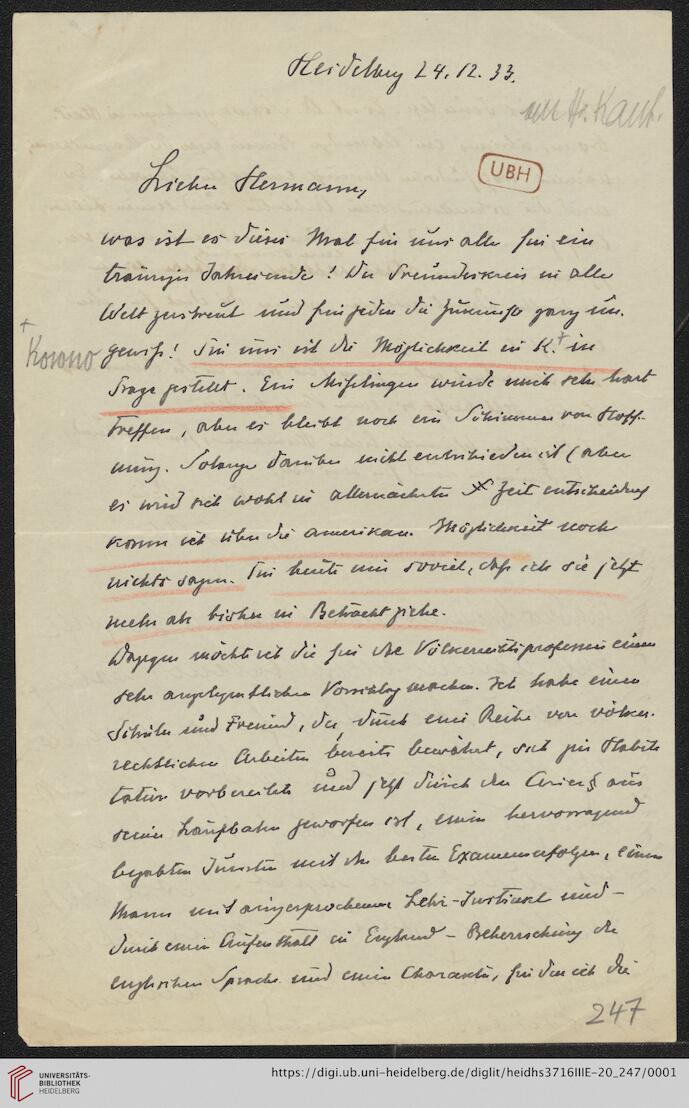 Heidelberg 24.12.33.
UBH
Lieber Hermann,
was ist es dieses Mal für uns alle für ein
trauriges Jahresende! Der Freundeskreis in alle
Welt zerstreut und für jeden die Zukunft ganz un-
gewiß! Für uns ist die Möglichkeit in K.+ in
+
Kowno
Frage gestellt. Ein Mißlingen würde mich sehr hart
treffen, aber es bleibt noch ein Schimmer von Hoff-
nung. Solange darüber nicht entschieden ist (aber
es wird sich wohl in allernächster Zeit entscheiden)
kann ich über die amerikan. Möglichkeit noch
nichts sagen. Für heute nur soviel, daß ich sie jetzt
mehr als bisher in Betracht ziehe.
Dagegen möchte ich die für die Völkerrechtsprofessur einen
sehr angelegentlichen Vorschlag machen. Ich habe einen
Schüler und Freund, der, durch eine Reihe von völker-
rechtlichen Arbeiten bereits bewährt, sich zur Habili
tation vorbereitete und jetzt durch den Arier§ aus
seiner Laufbahn geworfen ist, einen hervorragend
begabten Juristen mit den besten Examenserfolgen, einen
Mann mit ausgesprochenem Lehr-Instinkt und -
durch einen Aufenthalt in England - Beherrschung der
englischen Sprache und einen Charakter, für den ich die
247
UNIVERSITÄTS-
BIBLIOTHEK
HEIDELBERG
https://digi.ub.uni-heidelberg.de/diglit/heidhs3716IIIE-20_247/0001